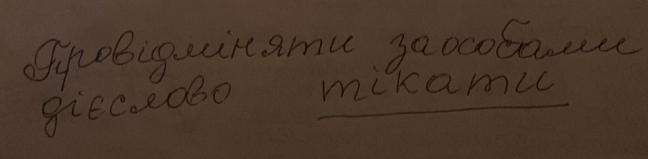 Провідміняти за особами
дієслово тікати